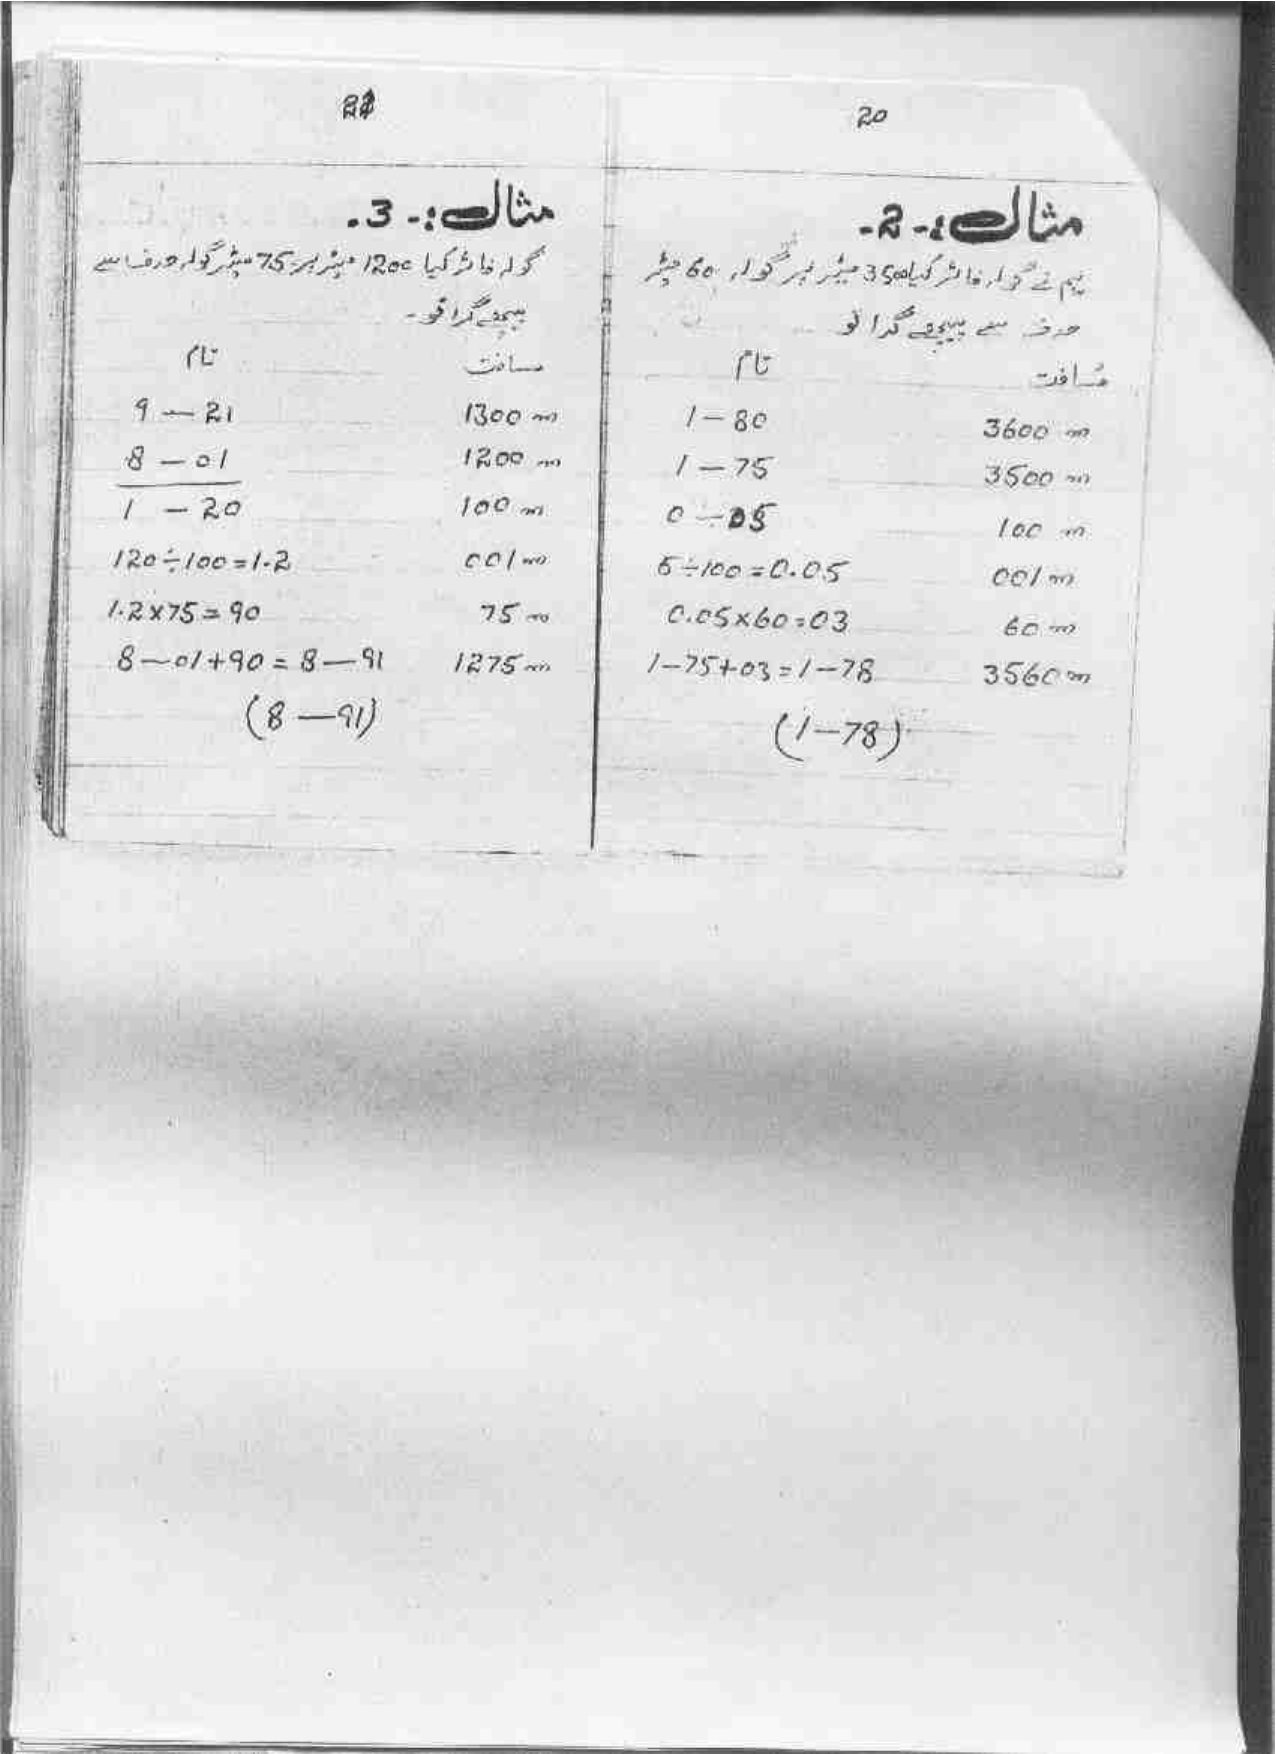 20
مثال :- 2-
ہم نے گولہ فائر کیا 3500 میٹر پر گولہ 60 میٹر
ہدف سے پیچھے گرا تو
مسافت تام
3600 m 1 – 80
3500 m 1 – 75
100 m 0 – 05
001 m 5÷100=0.05
60 m 0.05×60=03
3560 m 1–75+03=1–78
(1–78)
21
مثال :- 3-
گولہ فائر کیا 1200 میٹر پر 75 میٹر گولہ ہدف سے
پیچھے گرا تو-
مسافت تام
1300 m 9 – 21
1200 m 8 – 01
100 m 1 – 20
001 m 120÷100=1.2
75 m 1.2×75=90
1275 m 8–01+90=8–91
(8–91)